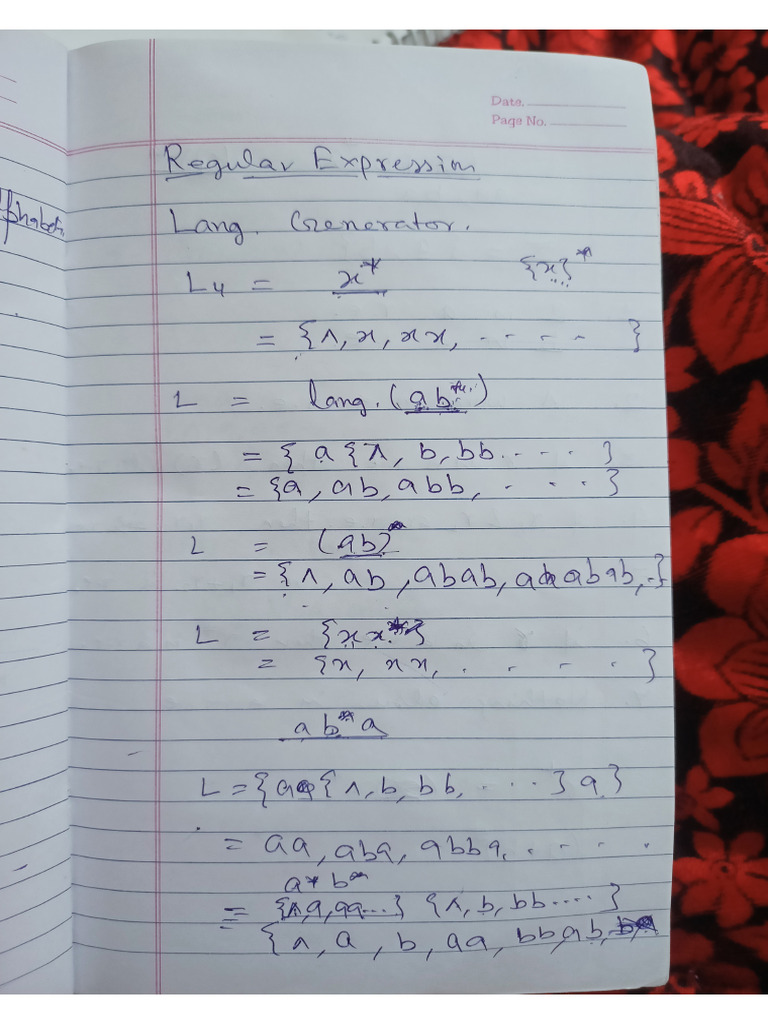 Date.
Page No.
phabet
Regular Expression
Lang. Generator.
L₄ = x* {x}*
= {Λ, x, xx, - - - - - }
L = lang. (ab*)
= { a {Λ, b, bb. - - - }
= {a, ab, abb, . . . . }
L = (ab)*
= {Λ, ab, abab, ababab, .}
L = {xx*}
= {x, xx, . - - - . }
ab*a
L = {a {Λ, b, bb, . . . . } a }
= aa, aba, abba, . - - - .
a* b*
= {Λ, a, aa...} {Λ, b, bb .... }
{Λ, a, b, aa, bb, ab,